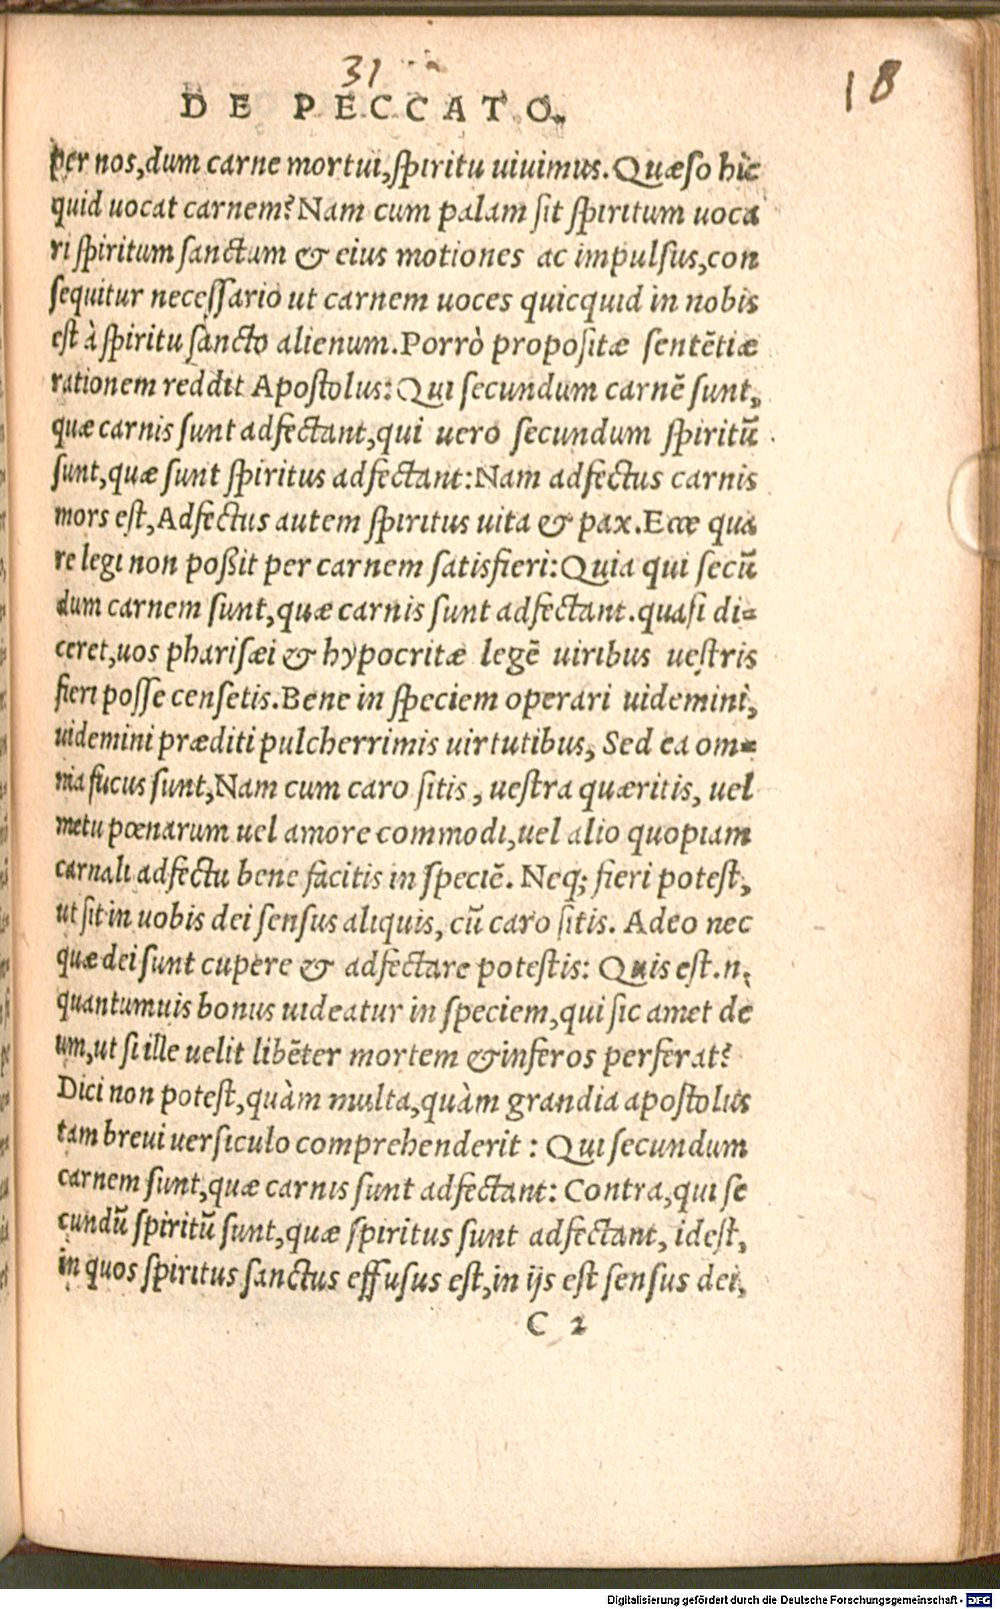 31
18
DE PECCATO.
per nos,dum carne mortui,ſpiritu uiuimus.Quæſo hîc
quid uocat carnem?Nam cum palam ſit ſpiritum uoca
ri ſpiritum ſanctum & eius motiones ac impulſus,con
ſequitur neceſſario ut carnem uoces quicquid in nobis
eſt à ſpiritu ſancto alienum.Porrò propoſitæ ſentẽtiæ
rationem reddit Apoſtolus:Qui ſecundum carnẽ ſunt,
quæ carnis ſunt adfectant,qui uero ſecundum ſpiritũ
ſunt,quæ ſunt ſpiritus adfectant:Nam adfectus carnis
mors eſt,Adfectus autem ſpiritus uita & pax.Ecce qua
re legi non poßit per carnem ſatisfieri:Quia qui ſecũ
dum carnem ſunt,quæ carnis ſunt adfectant.quaſi di=
ceret,uos phariſæi & hypocritæ legẽ uiribus ueſtris
fieri poſſe cenſetis.Bene in ſpeciem operari uidemini,
uidemini præditi pulcherrimis uirtutibus, Sed ea om=
nia fucus ſunt,Nam cum caro ſitis, ueſtra quæritis, uel
metu pœnarum uel amore commodi,uel alio quopiam
carnali adfectu bene facitis in ſpeciẽ. Neq; fieri poteſt,
ut ſit in uobis dei ſenſus aliquis, cũ caro ſitis. Adeo nec
quæ dei ſunt cupere & adfectare poteſtis: Quis eſt.n.
quantumuis bonus uideatur in ſpeciem,qui ſic amet de
um,ut ſi ille uelit libẽter mortem & inferos perferat?
Dici non poteſt,quàm multa,quàm grandia apoſtolus
tam breui uerſiculo comprehenderit : Qui ſecundum
carnem ſunt,quæ carnis ſunt adfectant: Contra,qui ſe
cundũ ſpiritũ ſunt,quæ ſpiritus ſunt adfectant, ideſt,
in quos ſpiritus ſanctus effuſus eſt,in ijs eſt ſenſus dei,
C 2
Digitalisierung gefördert durch die Deutsche Forschungsgemeinschaft - DFG